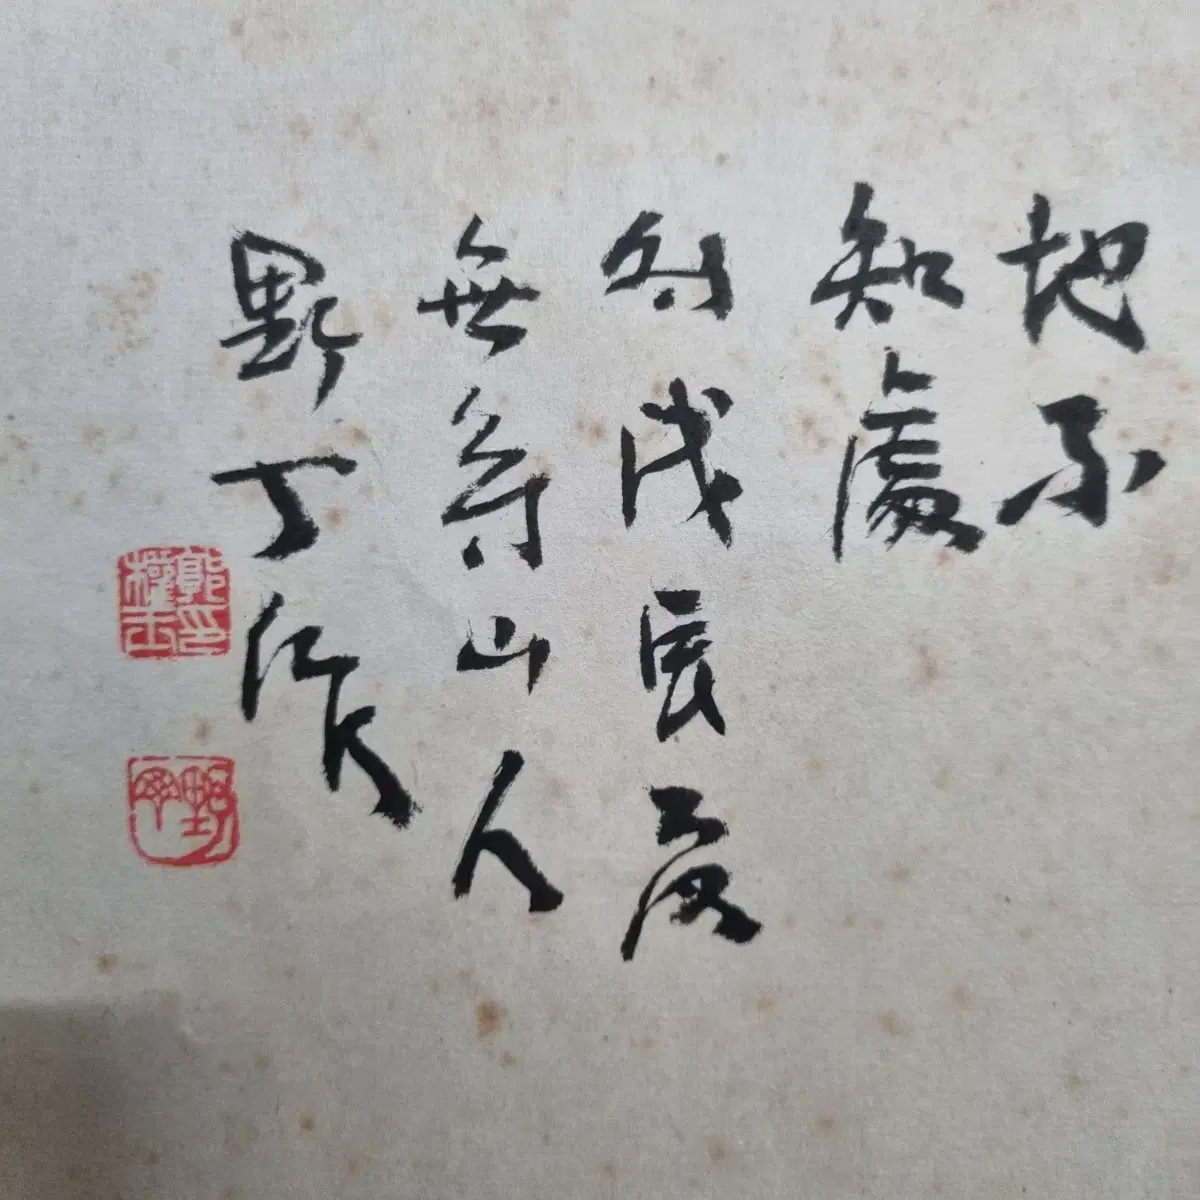 地不
知處
時戊辰夏
無等山人
野丁作